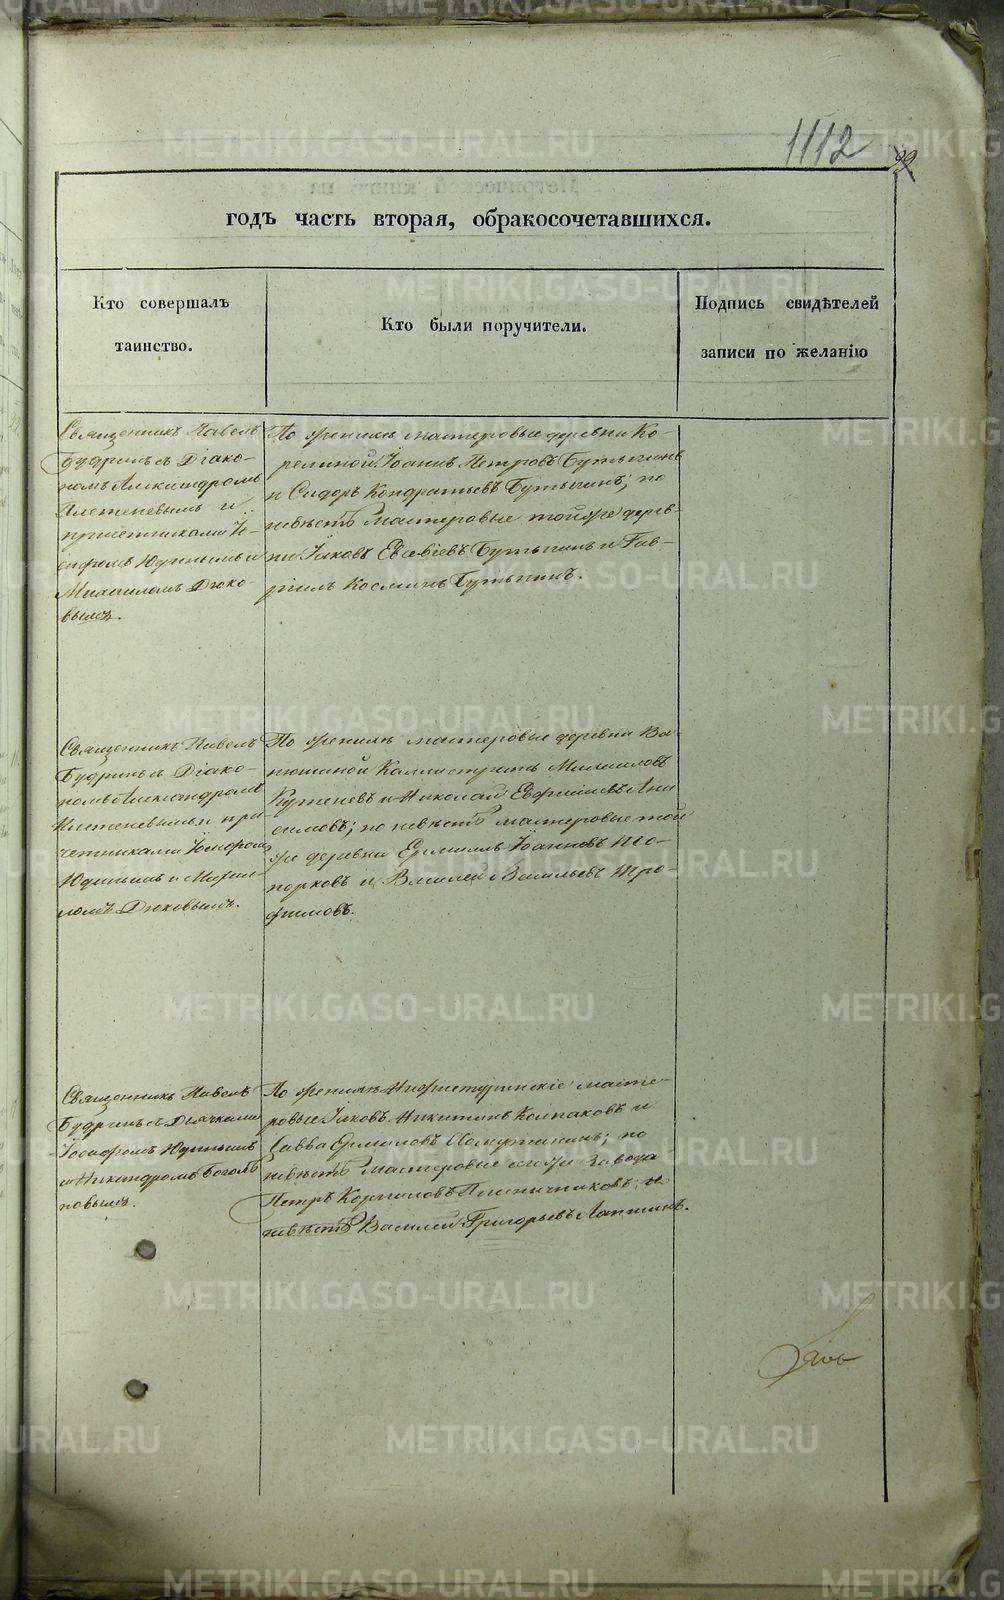 1112
99
годъ часть вторая, обракосочетавшихся.
Кто совершалъ
таинство.
Кто были поручители.
Подпись свидѣтелей
записи по желанію
Священникъ Павелъ
Будринъ съ Діако-
номъ Александромъ
и
причетниками Іо-
сифомъ Юдинымъ и
Михаиломъ Дюко-
вымъ.
По женихѣ мастеровые деревни Ко-
релиной Іоаннъ Петровъ Бутыгинъ
и Сидоръ Кондратьевъ Бутыгинъ; по
невѣстѣ мастеровые той же дерев-
ни Іаковъ Евсевіевъ Бутыгинъ и Гав-
ріилъ Косминъ Бутыгинъ.
Священникъ Павелъ
Будринъ съ Діако-
номъ Александромъ
и при
четниками Іосифомъ
Юдинымъ и Михаи-
ломъ Дюковымъ.
По женихѣ мастеровые деревни Ва
нюшиной Каллистратъ Михаиловъ
Кутеневъ и Николай Евфиміевъ Ани
симовъ; по невѣстѣ мастеровые той
же деревни Ермилъ Іоанновъ То-
порковъ и Василей Васильевъ Тро-
фимовъ.
Священникъ Павелъ
Будринъ съ Дьячками
Іосифомъ Юдинымъ
и Никандромъ Богомо
ловымъ.
По женихѣ Нижнетуринскіе масте-
ровые Іаковъ Никитинъ Колпаковъ и
Савва Ермиловъ; по
невѣстѣ мастеровые того же Завода
Петръ Корниловъ Пшеничниковъ; и
невѣстѣ Василей Григорьевъ Лапшинъ.
METRIKI.GASO-URAL.RU